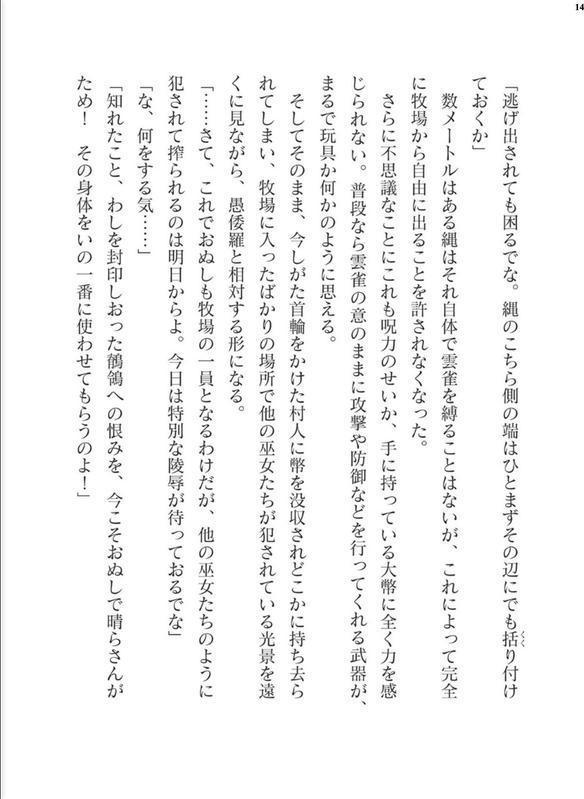 14
「逃げ出されても困るでな。縄のこちら側の端はひとまずその辺にでも括り付け
ておくか」
数メートルはある縄はそれ自体で雲雀を縛ることはないが、これによって完全
に牧場から自由に出ることを許されなくなった。
さらに不思議なことにこれも呪力のせいか、手に持っている大幣に全く力を感
じられない。普段なら雲雀の意のままに攻撃や防御などを行ってくれる武器が、
まるで玩具か何かのように思える。
そしてそのまま、今しがた首輪をかけた村人に幣を没収されどこかに持ち去ら
れてしまい、牧場に入ったばかりの場所で他の巫女たちが犯されている光景を遠
くに見ながら、愚倭羅と相対する形になる。
「……さて、これでおぬしも牧場の一員となるわけだが、他の巫女たちのように
犯されて搾られるのは明日からよ。今日は特別な陵辱が待っておるでな」
「な、何をする気……」
「知れたこと、わしを封印しおった鶺鴒への恨みを、今こそおぬしで晴らさんが
ため！　その身体をいの一番に使わせてもらうのよ！」